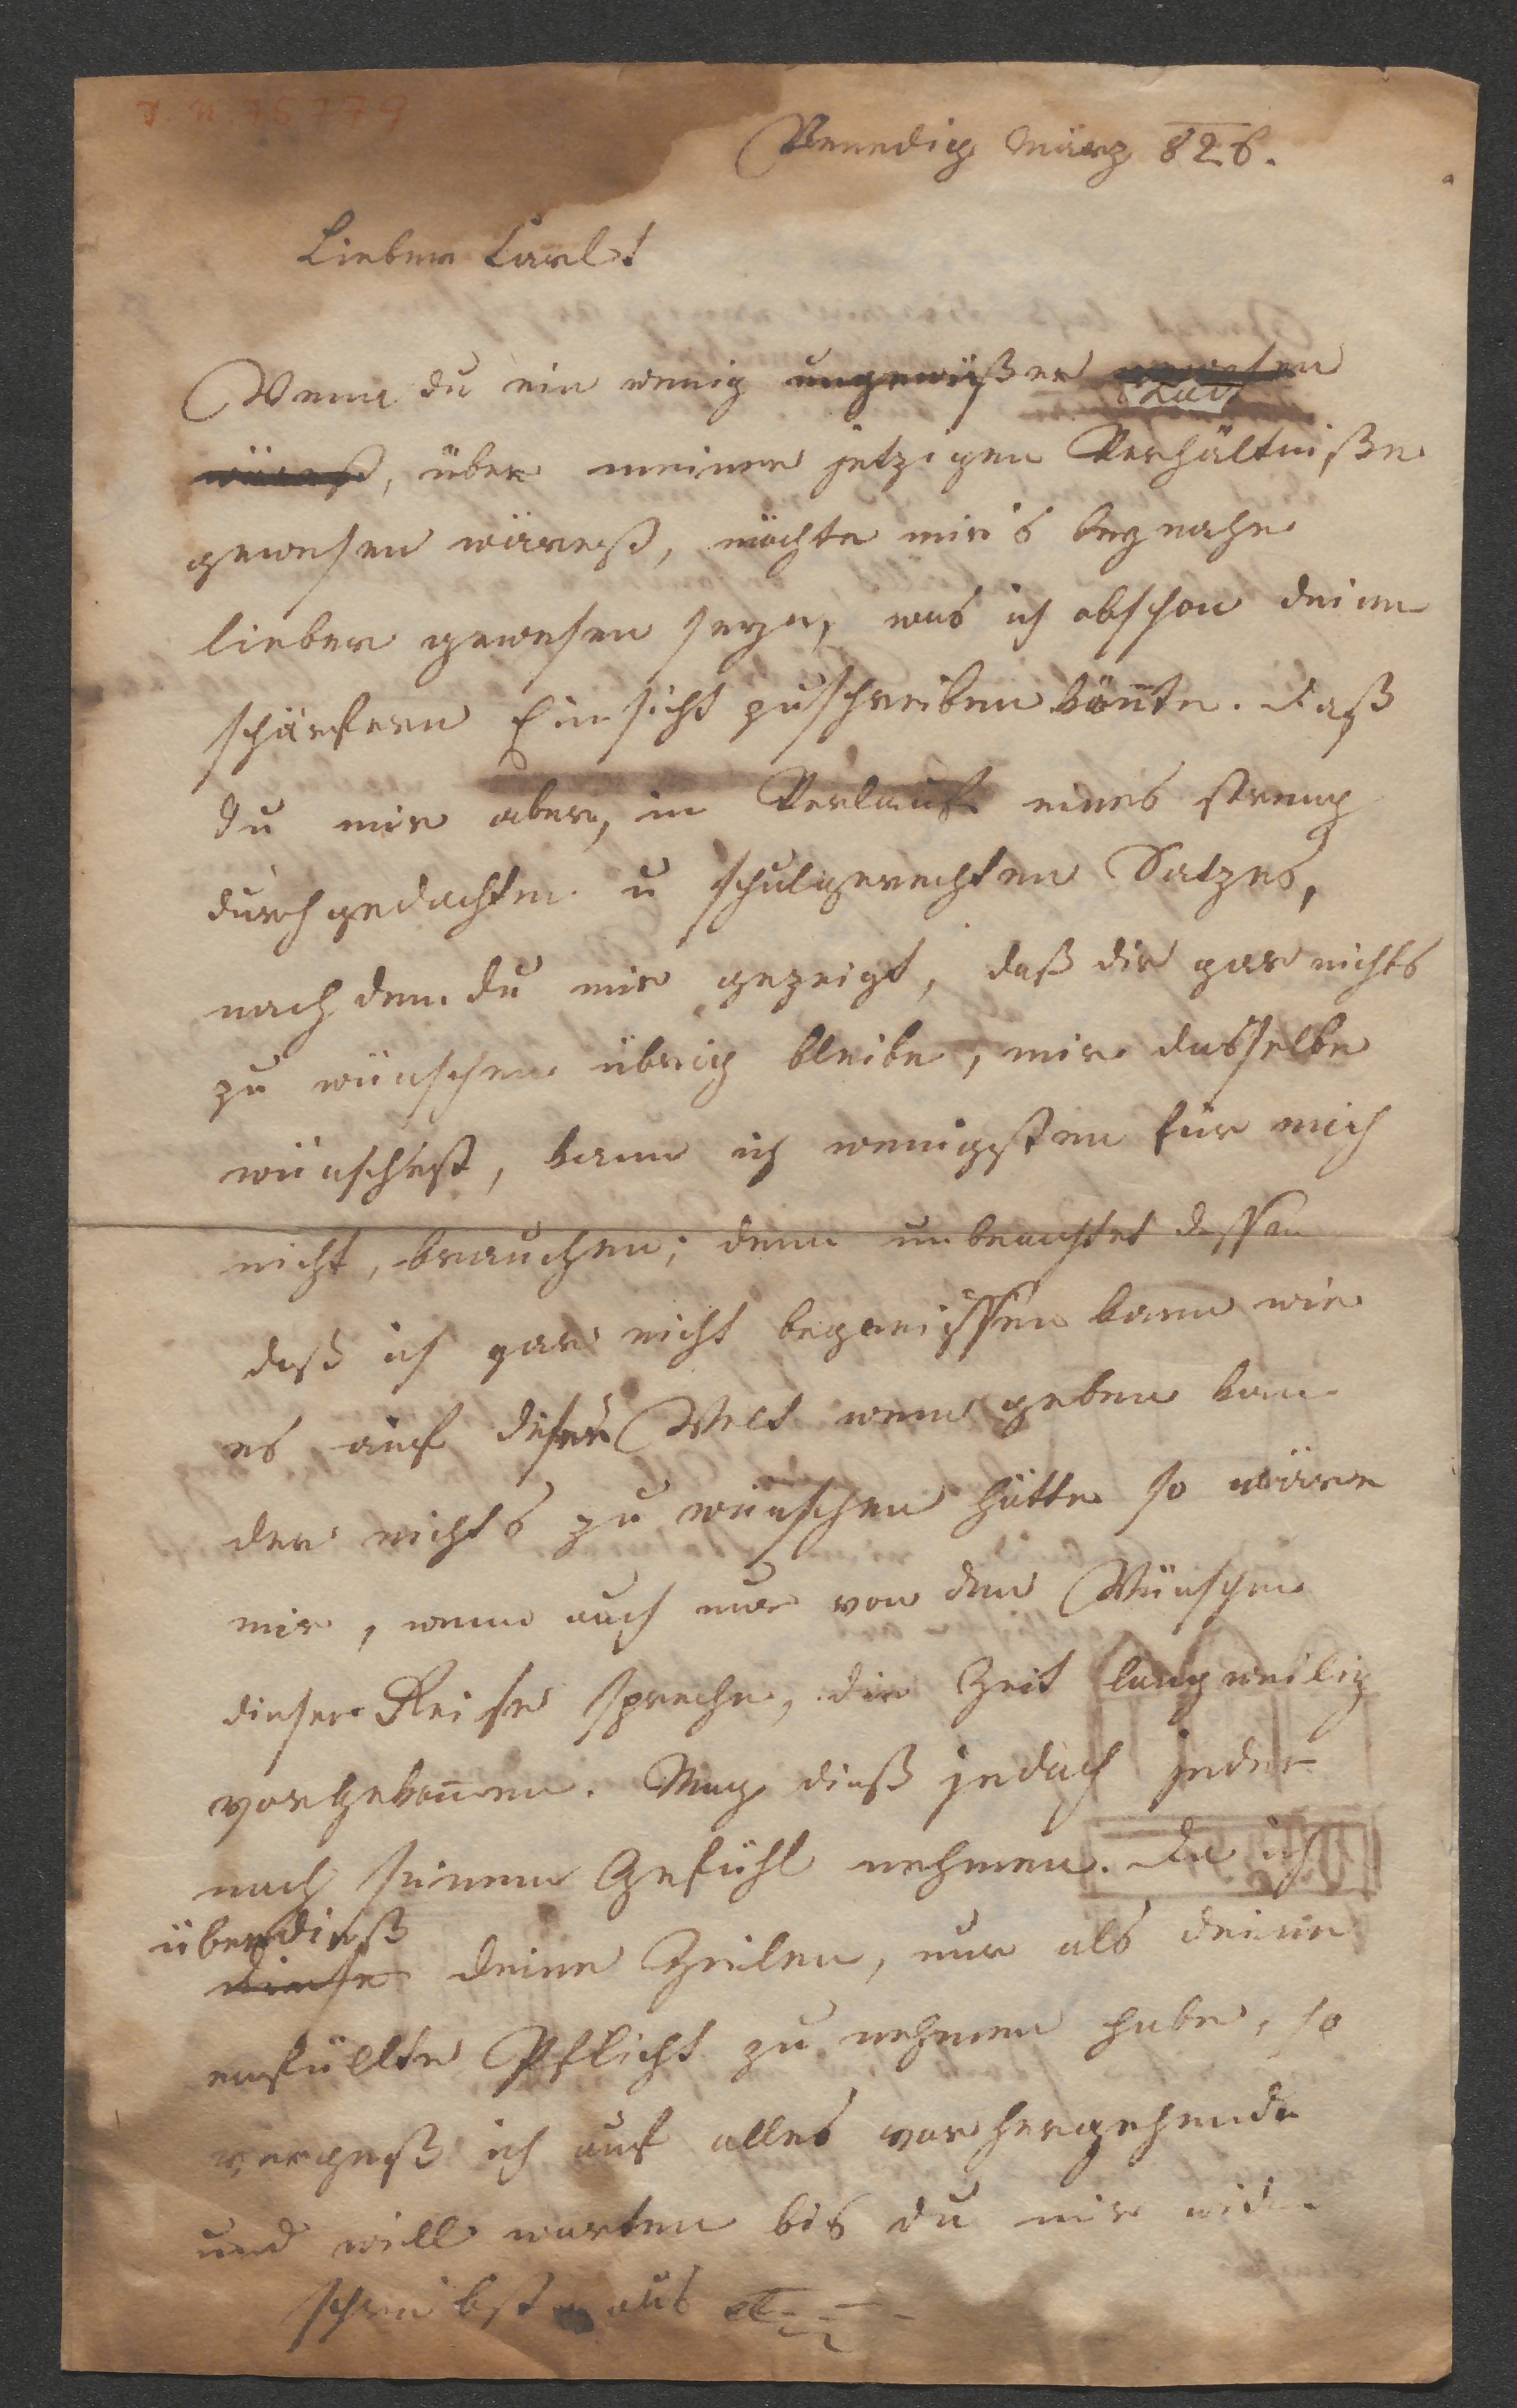 I. N. 75779
Venedig März 826.
Lieber Carl!
Wenn du ein wenig ungewißer gewesen
wärest, über meine jetzigen Verhältniße
gewesen wärest, möchte mir's beynahe
lieber gewesen seyn, was ich obschon deiner
schärfern Einsicht zuschreiben kön̄te. Daß
du mir aber, in Verlauf eines streng
durchgedachten u schulgerechten Satzes,
nach dem du mir gezeigt, daß dir gar nichts
zu wünschen übrig bleibe, mir dasselbe
wünschest, kann ich wenigsten für mich
nicht, brauchen; denn unbeachtet dessen
daß ich gar nicht begreiffen kann wie
es auf dieser Welt wem geben kan
der nichts zu wünschen hätte so wäre
mir, wenn auch nur von den Wünschen
dieser Reise spreche, die Zeit langweilig
vorgekom̄en. Mag dieß jedoch jeder
nach seinem Gefühl nehmen. Da ich
überdieß
diese deine Zeilen, nur als deine
erfüllte Pflicht zu nehmen habe, so
vergeß ich auf alles vorhergehende
und will warten bis du mir wieder
schreibst aus